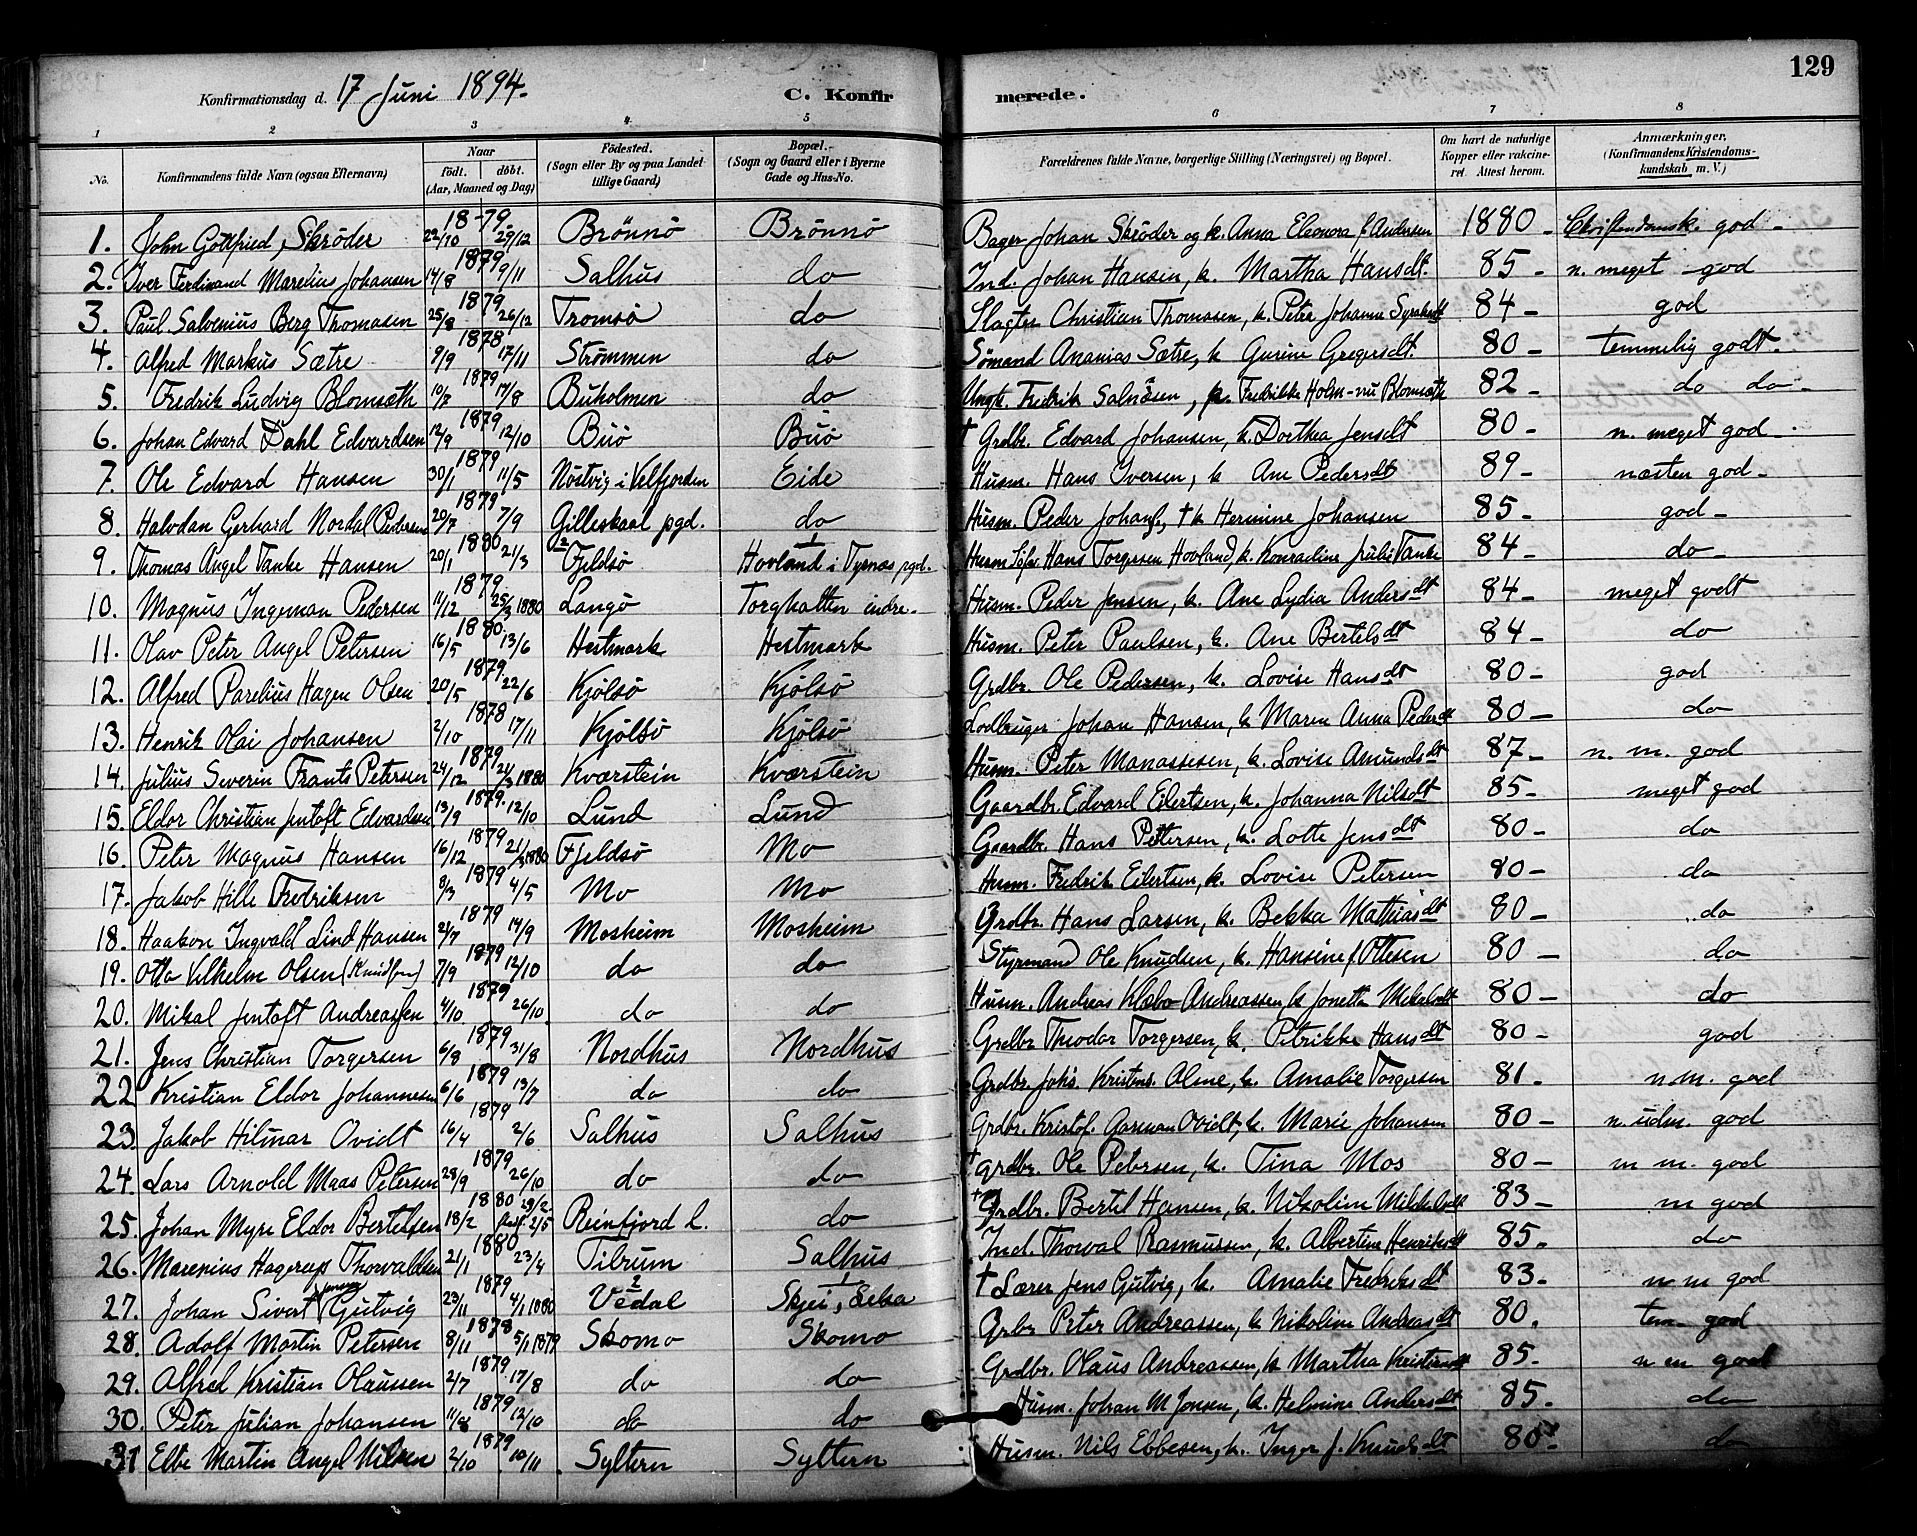 129
Konfirmationsdag d. 17 Juni 1894. C. Konfir merede.
1 2 3 4. 5 6 7 8
No. Konfirmandens fulde Navn (ogsaa Efternavn) Naar født. døbt. (Aar, Maaned og Dag) Fødested. (Sogn eller By og paa Landet tillige Gaard) Bopæl. (Sogn og Gaard eller i Byerne Gade og Hus-No. Forældrenes fulde Navne, borgerlige Stilling (Næringsvei) og Bopæl. Om havt de naturlige Kopper eller vakcineret. Attest herom. Anmærkninger. (Konfirmandens Kristendomskundskab m. V.)
1. John Gottfried Skrøder 18-79. 22/10 29/12 Brønnø Brønnø Bager Johan Skrøder og k. Anna Eleonora f. Andersen 1880 - Christendomsk. god -
2. Iver Ferdinand Marelius Johansen 1879 14/8 9/11 Salhus do Ind. Johan Hansen, k. Martha Hansdt. 85 - n. meget god
3. Paul Salvenius Berg Thomasen 1879 25/8 26/12 Tromsø do Slagter Christian Thomassen, k. Petra Johanna 84 - god
4. Alfred Markus Sætre 1878 9/9 17/11 Strømmen do Sømand Ananias Sætre, k Gurine Gregersdt. 80 - temmelig godt.
5. Fredrik Ludvig Blomsøth 1879 19/7 17/8 Buholmen do Ungk. Fredrik Salnæsen, p. Fredrikke Holm - nu Blomsøth 82 - do do -
6. Johan Edvard Dahl Edvardsen 1879 12/9 12/10 Buø Buø † Grdbr. Edvard Johansen, k. Dorthea Jensdt 80 - n. meget god -
7. Ole Edvard Hansen 1879 30/1 11/5 Nøstvig i Velfjorden Eide Husm. Hans Iversen, k Ane Pedersdt 89 - næsten god -
8. Halvdan Gerhard Nordal Pedersen 1879 20/7 7/9 Gilleskaal pgd. do Husm. Peder Johans., † k Hermine Johansen 85 - god -
9. Thomas Angel Tanke Hansen 1880 20/1 21/3 2 Fjeldsø 1 Hovland i Tysnæs pgd. Husm Hans Torgersen Hovland, k. Konradine Julie Tanke 84 - do -
10. Magnus Ingeman Pedersen 1879. 11/12 25/3 1880 Langø Torghatten indre. Husm. Peder Jensen, k. Ane Lydia Andersdt 84 - meget godt
11. Olav Peter Angel Petersen 1880. 16/5 13/6 Hestmark Hestmark Husm. Peter Paulsen, k. Ane Bertelsdt 84 - do
12. Alfred Parelius Hagen Olsen 1879. 20/5 22/6 Kjølsø Kjølsø Grdbr. Ole Pedersen, k. Lovise Hansdt 80 - god
13. Henrik Olai Johansen 1878 2/10 17/11 Kjølsø Kjølsø Lodbruger Johan Hansen, k Maren Anna Pedersdt 80 - do
14. Julius Severin Frants Petersen 1879 24/12 21/3 1880 Kværstein Kværstein Husm. Peter Manassesen, k. Lovise Amundsdt 87 - n. m. god
15. Eldor Christian Jentoft Edvardsen 1879. 13/9 12/10 Lund Lund Gaardbr. Edvard Eilertsen, k. Johanna Nilsdt 85 - meget god
16. Peter Magnus Hansen 1879 16/12 21/3 1880 Fjeldsø Mo Gaardbr. Hans Pettersen, k. Lotte Jensdt 80 - do
17. Jakob Hille Fredriksen 1879 8/3 4/5 Mo Mo Husm. Fredrik Eilertsen, k. Lovise Petersen 80 - do
18. Haakon Ingvald Lind Hansen 1879 2/7 14/9 Mosheim Mosheim Grdbr. Hans Larsen, k. Bekka Mathiasdt 80 - do
19. Otto Vilhelm Olsen (Knudsen) 1879 7/9 12/10 do do Styrmand Ole Knudsen, k. Hansine f. Ottesen 80 - do
20. Mikal Jentoft Andreassen 1879 4/10 26/10. do do Husm. Andreas Klæbo Andreassen k Jonetta Mikalsdt 80 - do
21. Jens Christian Torgersen 1879 6/8 31/8 Nordhus Nordhus Grdbr Theodor Torgersen, k. Petrikke Hansdt 80 - god
22 Kristian Eldor Johannesen 1879 6/6 13/7 do do Grdbr. Johs. Kristens. Alme, k. Amalie Torgersen 81 - n. m. god
23. Jakob Hilmar Ovidt 1879 16/4 2/6 Salhus Salhus Grdbr. Kristof. Aarman Ovidt, k. Marie Johansen 80 - n. udm. god
24. Lars Arnold Maas Petersen 1879 28/9 26/10 do do † Grdbr. Ole Petersen, k. Tina Mos 80 - m m. god
25. Johan Myre Eldor Bertelsen 1880 18/2 29/2 2/5 Reinfjord L. do † Grdbr. Bertel Hansen, k. Nikoline 83 - m god
26. Marenius Hagerup Thorvaldsen 1880 21/1 23/4 Tilrum Salhus Ind. Thorval Rasmussen, k. Albertine Henriksdt 85. do
27. Johan Sivert Jensen Gutvig 1879 23/11 4/1 1880 2 Vedal 1 Skjei, Leka † Lærer Jens Gutvig, k. Amalie Fredriksdt 83 - n m god
28. Adolf Martin Petersen 1878 8/11 5/1 1879 Skomo Skomo Grbr Peter Andreassen, k Nikoline Andreasdt 80. tem. god
29. Alfred Kristian Olaussen 1879. 2/7 17/8 do do Grdbr. Olaus Andreassen, k Martha Kristiansdt 85. n m god
30. Peter Julian Johansen 1879 11/8 12/10 do do Husm. Johan M Jensen, k. Helmine Andersdt 85. do
31 Elbe Martin Angel Nilsen 1879 2/10 10/11 Syltern Syltern Husm. Nils Ebbesen, k. Inger J. Knudsdt 80 do